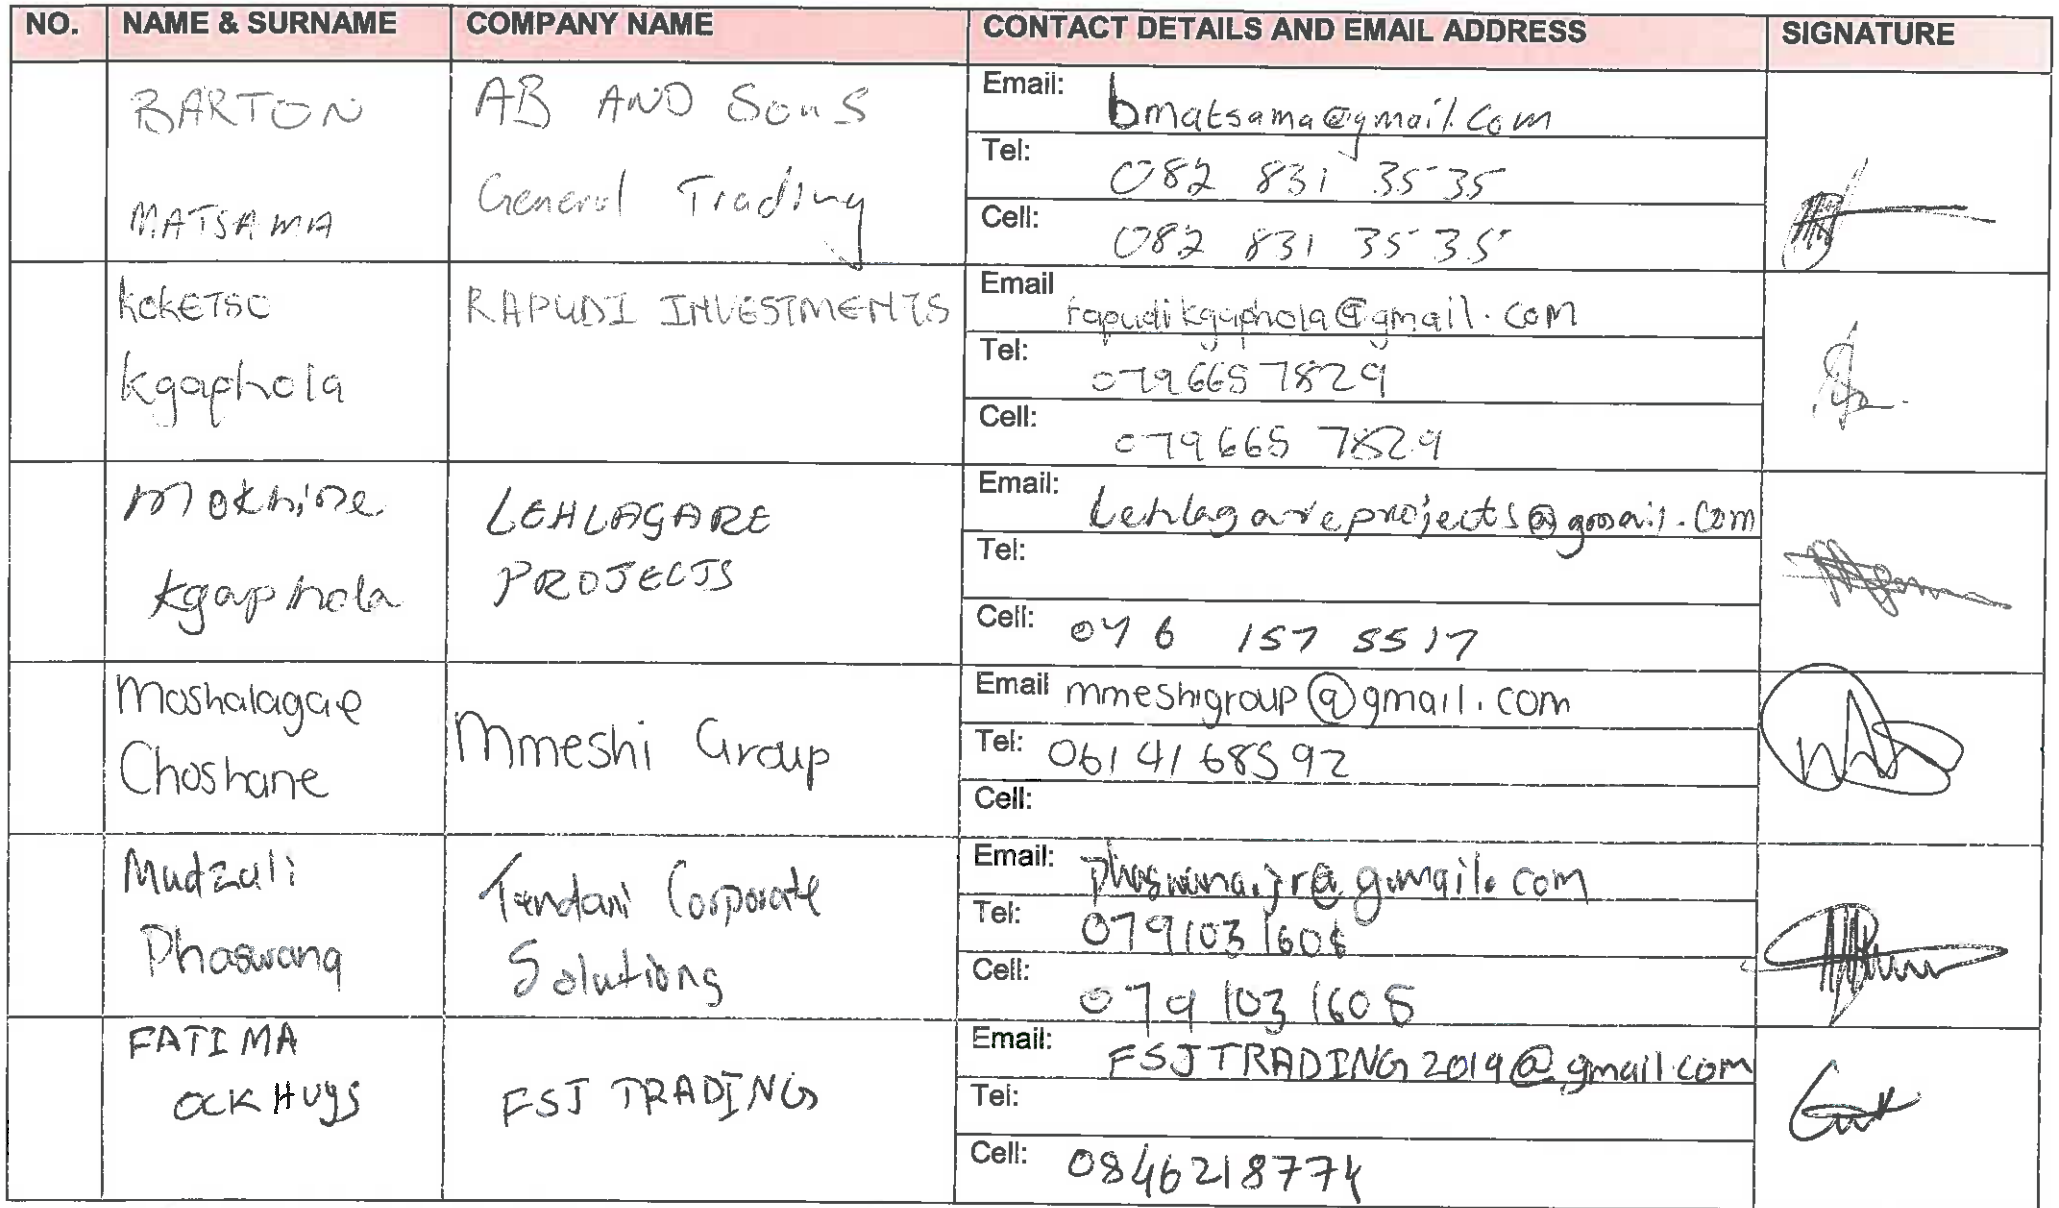 NO. NAME & SURNAME COMPANY NAME CONTACT DETAILS AND EMAIL ADDRESS SIGNATURE
BARTON
MATSAMA
AB AND Sons
General Trading
Email: bmatsama@gmail.com
Tel: 082 831 35 35
Cell: 082 831 35 35
KOKETSO
Kgaphola
RAPUDI INVESTMENTS
Email rapudikgaphola@gmail.com
Tel: 079 665 7829
Cell: 079 665 7829
Mokhine
Kgaphola
LEHLAGARE
PROJECTS
Email: Lehlagareprojects@gmail.com
Tel:
Cell: 076 157 5517
Moshalagae
Choshane
Mmeshi Group
Email mmeshigroup@gmail.com
Tel: 061 41 68592
Cell:
Mudzuli
Phaswana
Tendani Corporate
Solutions
Email: phaswana.jr@gmail.com
Tel: 079 103 1605
Cell: 079 103 1605
FATIMA
OCKHUYS
FSJ TRADING
Email: FSJTRADING2019@gmail.com
Tel:
Cell: 0846218774